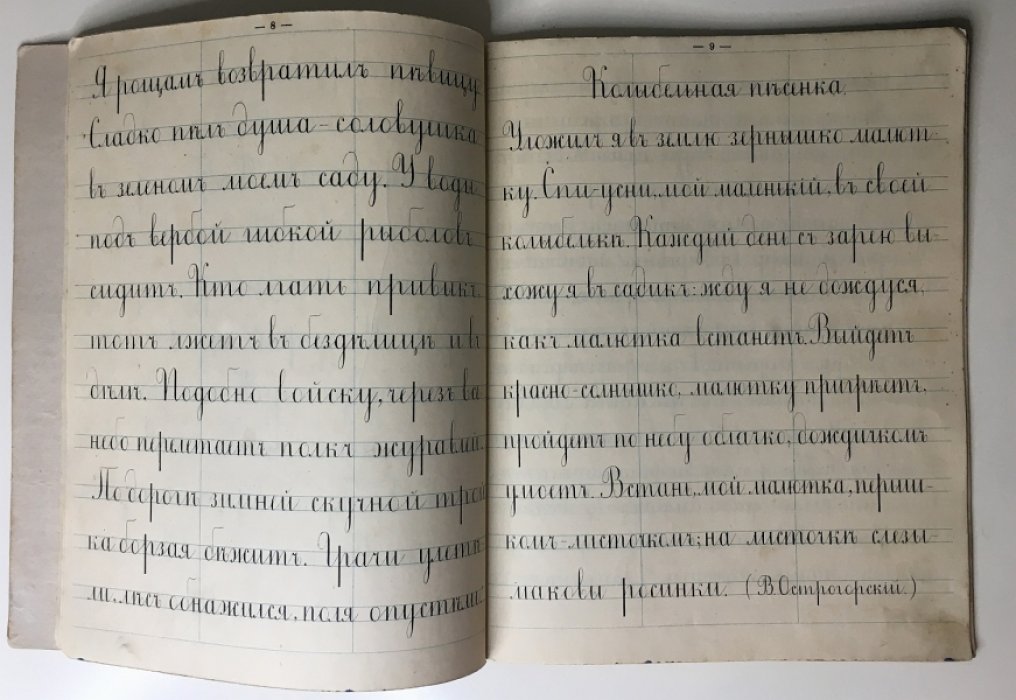 — 8 —
Я рощамъ возвратилъ пѣвицу.
Сладко пѣлъ душа-соловушка
въ зеленомъ моемъ саду. У воды
подъ вербой гибкой рыболовъ
сидитъ. Кто лгать привыкъ,
тотъ лжетъ въ бездѣлицѣ и въ
дѣлѣ. Подобно войску, черезъ
небо перелетаетъ полкъ журавлей.
По дорогѣ зимней скучной трой
ка борзая бѣжитъ. Грачи улетѣ
ли, лѣсъ обнажился, поля опустѣли.
— 9 —
Колыбельная пѣсенка.
Уложилъ я въ землю зернышко малют-
ку. Спи-усни, мой маленькій, въ своей
колыбелькѣ. Каждый день съ зарею вы-
хожу я въ садикъ: жду я не дождуся,
какъ малютка встанетъ. Выйдетъ
красно-солнышко, малютку пригрѣетъ,
пройдетъ по небу облачко, дождичкомъ
умоетъ. Встань, мой малютка, перыш-
комъ-листочкомъ; на листочкѣ слезы-
маковы росинки. (В. Острогорскій.)